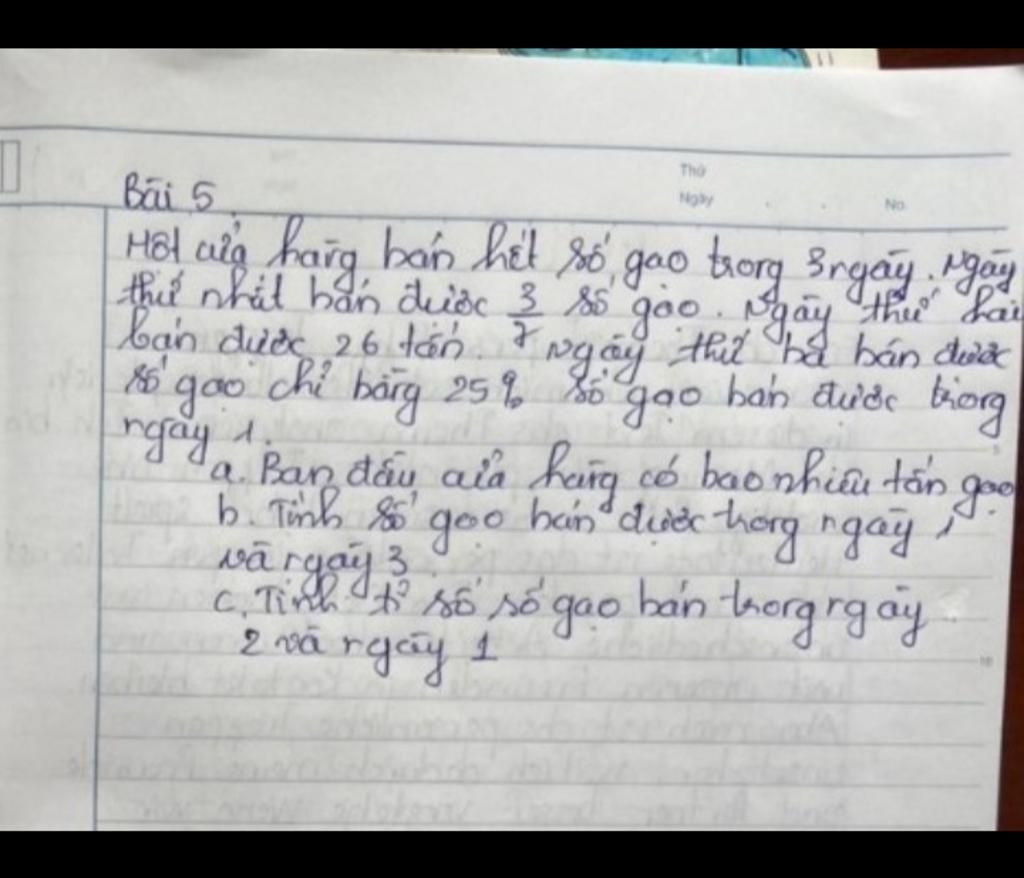 Thứ
Ngày . . No.
Bài 5
Một cửa hàng bán hết số gạo trong 3 ngày. Ngày
thứ nhất bán được 3/7 số gạo. Ngày thứ hai
bán được 26 tấn. Ngày thứ ba bán được
số gạo chỉ bằng 25% số gạo bán được trong
ngày 1.
a. Ban đầu cửa hàng có bao nhiêu tấn gạo
b. Tính số gạo bán được trong ngày 1
và ngày 3
c. Tính tỉ số số gạo bán trong ngày
2 và ngày 1